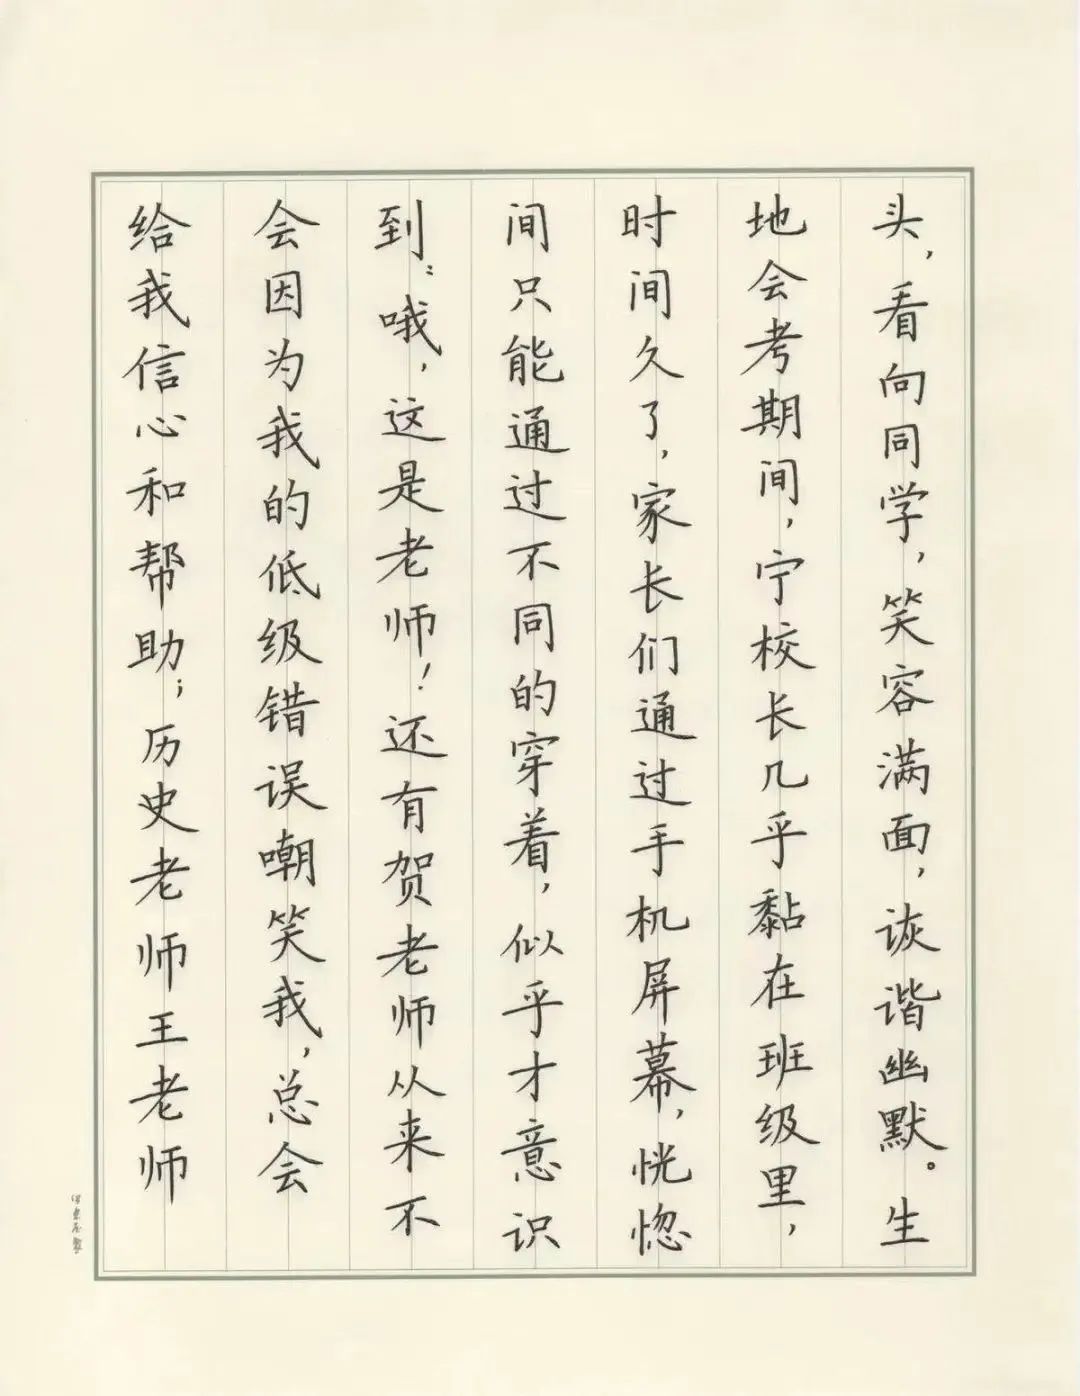 头，看向同学，笑容满面，诙谐幽默。生
地会考期间，宁校长几乎黏在班级里，
时间久了，家长们通过手机屏幕，恍惚
间只能通过不同的穿着，似乎才意识
到：哦，这是老师！还有贺老师从来不
会因为我的低级错误嘲笑我，总会
给我信心和帮助；历史老师王老师